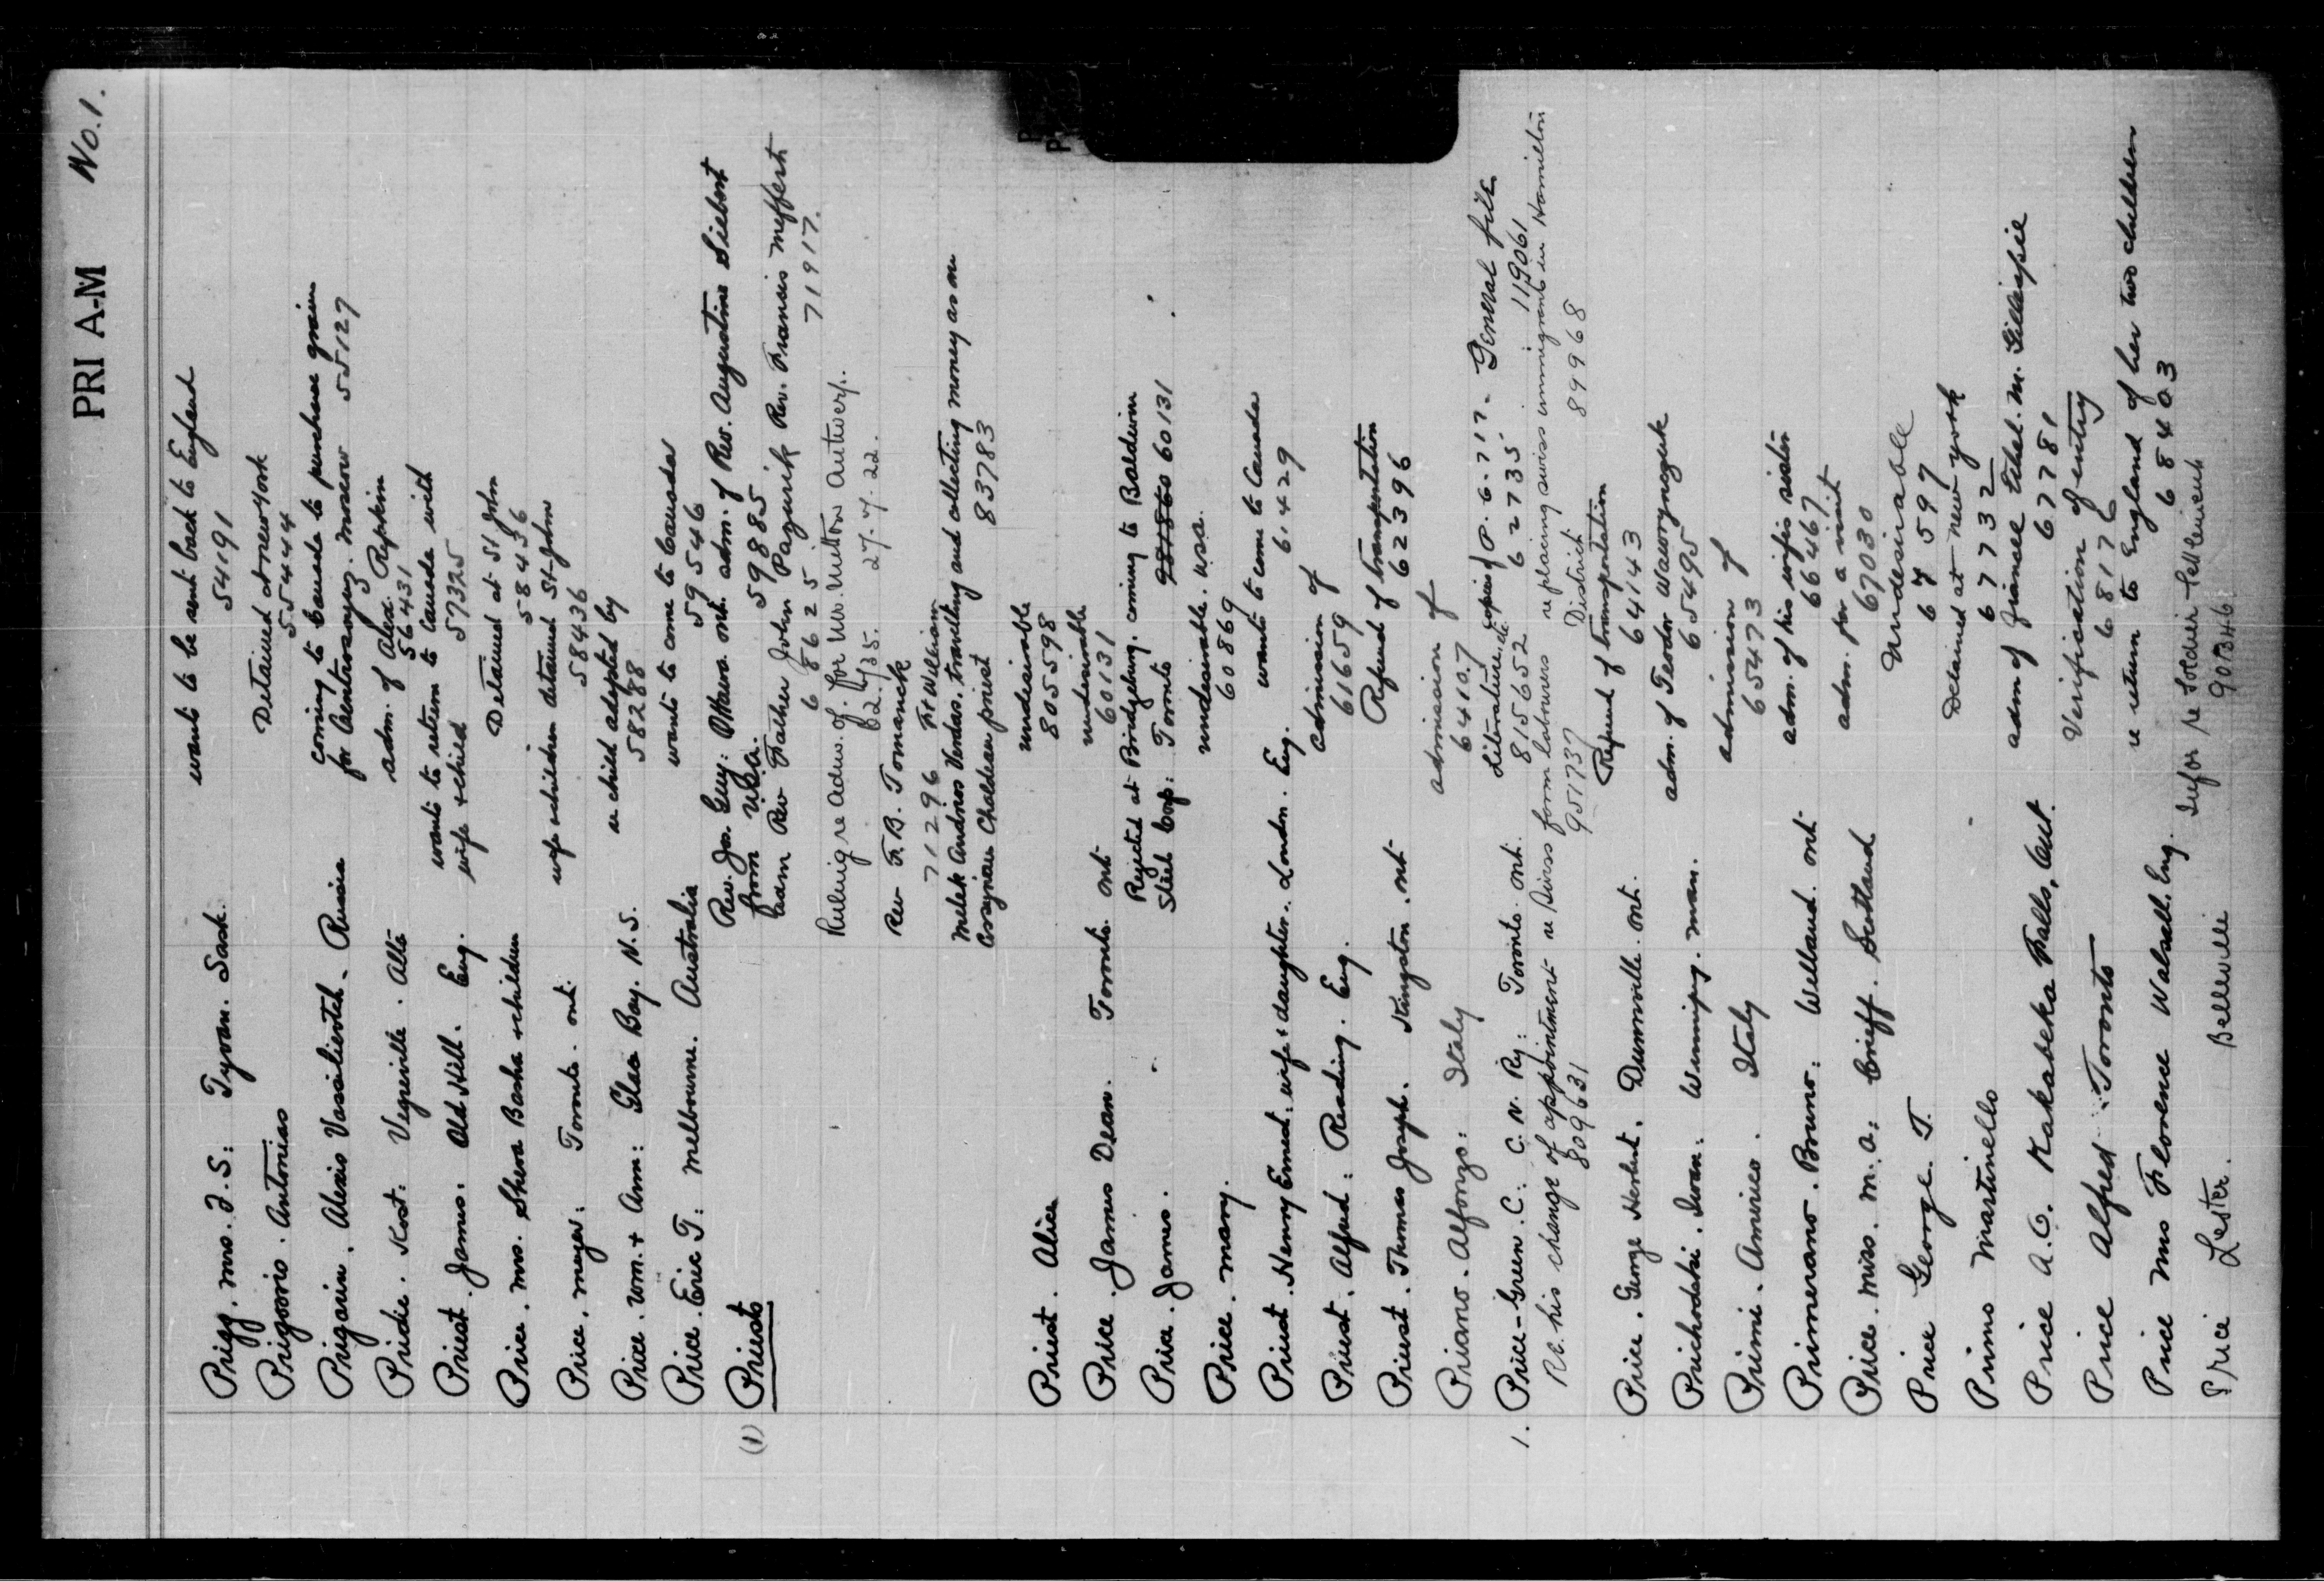 PRI A-M No. 1.
Prigg. Mrs. J. S: Tyvan. Sask. wants to be sent back to England
54191
Prigorio. Antonias Detained at New York
55444
Prigarin. Alexis Vassilievitch. Russia coming to Canada to purchase grain
for Centrosoyuz. Moscow 55127
Pridie. Kost: Vegreville. Alta adm. of Alex. Repkin
56431
Priest. James. Old Hill. Eng. wants to return to Canada with
wife + child 57325
Price. Mrs. Sheva Basha + children Detained at St John
58436
Price. Meyer: Toronto. Ont. wife + children detained St-John
58436
Price. Wm. + Ann: Glace Bay. N.S. re child adopted by
58288
Price. Eric T: Melbourne. Australia wants to come to Canada
59546
(1) Priests Rev. Jos. Guy: Ottawa. Ont. adm. of Rev. Augustine Siebert
from U.S.A. 59885
Rev Father John Pazurik Rev. Francis Meffert
68625 71917
Ruling re Adm. of. for Mr. Mitton Antwerp.
27.7.22.
Rev F. B. Tomanek Ft William
71296
Melek Andrios Verdas. travelling and collecting money as an
Assyrian Chaldean priest 83783
Priest. Alice undesirable
805598
Price. James Dean. Toronto. Ont undesirable
60131
Price. James. Rejected at Bridgeburg. coming to Baldwin
Steel Corp: Toronto 60131
Price. Mary. undesirable. USA.
60869
Priest. Henry Ernest. wife + daughter. London. Eng. wants to come to Canada
61429
Priest. Alfred: Reading. Eng. admission of
61659
Priest. Thomas Joseph. Kingston. Ont Refund of transportation
62396
Priano. Alfonzo: Italy admission of
64107
1. Price-Green. C. C. N. Ry: Toronto. Ont. Literature, &c copies of P. 6. 717. General file
815652 62735 119061
Re. his change of appointment re Swiss farm labourers re placing swiss immigrants in Hamilton
809631 951737 District 89968
Price. George Herbert. Dunnville. Ont. Refund of transportation
64143
Prichodski. Iwan. Winnipeg. Man. adm. of Teodor Waworynczuk
65495
Primi. Americo. Italy admission of
65473
Primerano. Bruno: Welland. Ont adm. of his wife's sister
66467
Price. Miss. M. A: Crieff. Scotland adm. for a visit
67030
Price George T. Undesirable
67597
Primo Mastinello Detained at New York
67732
Price A. G. Kakabeka Falls, Ont. adm of fiancee Ethel. M. Gillespie
67781
Price Alfred Toronto Verification of entry
68176
Price Mrs Florence Walsall. Eng. re return to England of her two children
68403
Price Lester. Belleville Infor re Soldier Settlement
90346